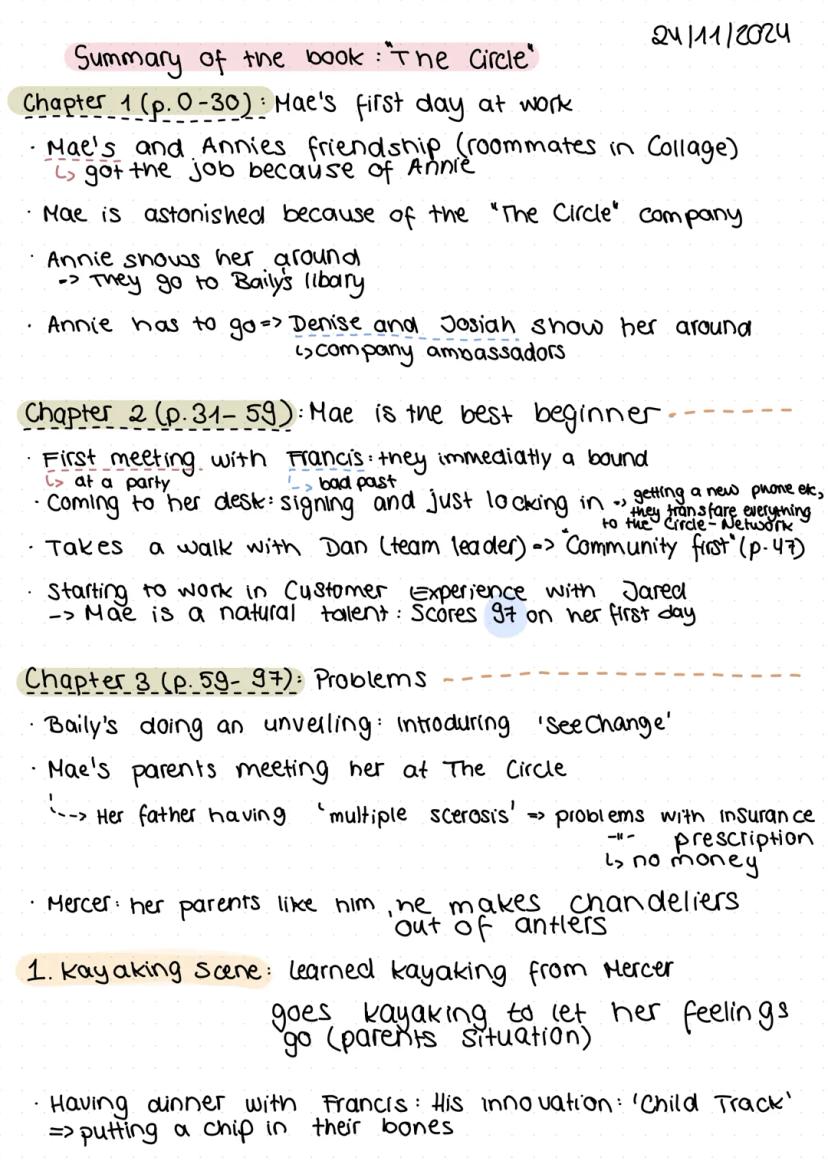 24/11/2024
Summary of the book: "The Circle"
Chapter 1 (p. 0-30): Mae's first day at work
· Mae's and Annies friendship (roommates in Collage)
↳ got the job because of Annie
· Mae is astonished because of the "The Circle" company
· Annie shows her around
-> They go to Baily's libary
· Annie has to go => Denise and Josiah show her around
↳ company ambassadors
Chapter 2 (p. 31-59): Mae is the best beginner
· First meeting with Francis: they immediatly a bound
↳ at a party ↳ bad past
· Coming to her desk: signing and just locking in -> getting a new phone etc,
they transfare everything
to the Circle-Network
· Takes a walk with Dan (team leader) -> "Community first" (p. 47)
· Starting to work in Customer Experience with Jared
-> Mae is a natural talent: Scores 97 on her first day
Chapter 3 (p. 59-97): Problems
· Baily's doing an unveiling: introduring 'SeeChange'
· Mae's parents meeting her at The Circle
--> Her father having 'multiple scerosis' => problems with insurance
-"- prescription
↳ no money
· Mercer: her parents like him, he makes chandeliers
out of antlers
1. Kayaking scene: learned kayaking from Mercer
goes kayaking to let her feelings
go (parents situation)
· Having dinner with Francis: His innovation: 'Child Track'
=> putting a chip in their bones